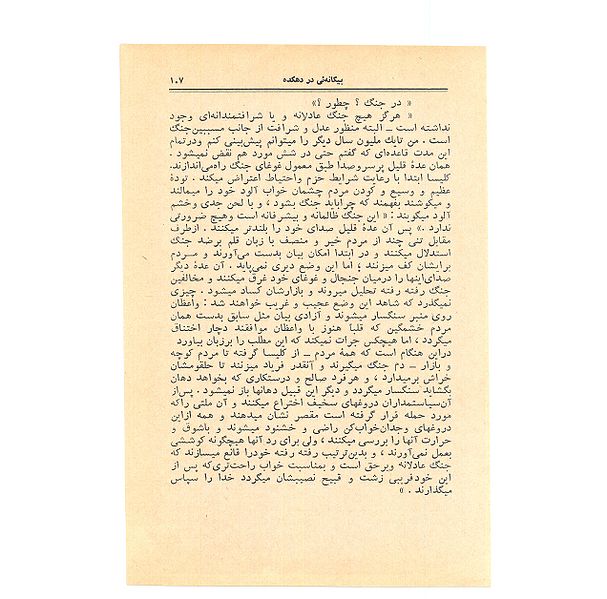 بیگانه‌ئی در دهکده ۱۰۷
« در جنگ ؟ چطور ؟»
« هرگز هیچ جنگ عادلانه و یا شرافتمندانه‌ای وجود
نداشته است ـ البته منظور عدل و شرافت از جانب مسببین‌جنگ
است . من تایك ملیون سال دیگر را میتوانم پیش‌بینی کنم ودرتمام
این مدت قاعده‌ای که گفتم حتی در شش مورد هم نقض نمیشود .
همان عدهٔ قلیل پرسروصدا طبق معمول غوغای جنگ راه‌می‌اندازند.
کلیسا ابتدا با رعایت شرایط حزم واحتیاط اعتراض میکند . تودهٔ
عظیم و وسیع و کودن مردم چشمان خواب آلود خود را میمالند
و میکوشند بفهمند که چراباید جنگ بشود ، و با لحن جدی وخشم
آلود میگویند : « این جنگ ظالمانه و بیشرفانه است وهیچ ضرورتی
ندارد .» پس آن عدهٔ قلیل صدای خود را بلندتر میکنند . ازطرف
مقابل تنی چند از مردم خیر و منصف با زبان قلم برضد جنگ
استدلال میکنند و در ابتدا امکان بیان بدست می‌آورند و مردم
برایشان کف میزنند ؛ اما این وضع دیری نمی‌پاید . آن عدهٔ دیگر
صدای‌اینها را درمیان جنجال و غوغای خود غرق میکنند و مخالفین
جنگ رفته رفته تحلیل میروند و بازارشان کساد میشود . چیزی
نمیگذرد که شاهد این وضع عجیب و غریب خواهند شد : واعظان
روی منبر سنگسار میشوند و آزادی بیان مثل سابق بدست همان
مردم خشمگین که قلباً هنوز با واعظان موافقند دچار اختناق
میگردد ، اما هیچکس جرات نمیکند که این مطلب را برزبان بیاورد
دراین هنگام است که همهٔ مردم ـ از کلیسا گرفته تا مردم کوچه
و بازار ـ دم جنگ میگیرند و آنقدر فریاد میزنند تا حلقومشان
خراش برمیدارد ، و هرفرد صالح و درستکاری که بخواهد دهان
بگشاید سنگسار میگردد و دیگر این قبیل دهانها باز نمیشود . پس‌از
آن‌سیاستمداران دروغهای سخیف اختراع میکنند و آن ملتی راکه
مورد حمله قرار گرفته است مقصر نشان میدهند و همه ازاین
دروغهای وجدان‌خواب‌کن راضی و خشنود میشوند و باشوق و
حرارت آنها را بررسی میکنند ، ولی برای رد آنها هیچگونه کوششی
بعمل نمی‌آورند ، و بدین‌ترتیب رفته رفته خودرا قانع میسازند که
جنگ عادلانه وبرحق است و بمناسبت خواب راحت‌تری‌که پس از
این خودفریبی زشت و قبیح نصیبشان میگردد خدا را سپاس
میگذارند . »